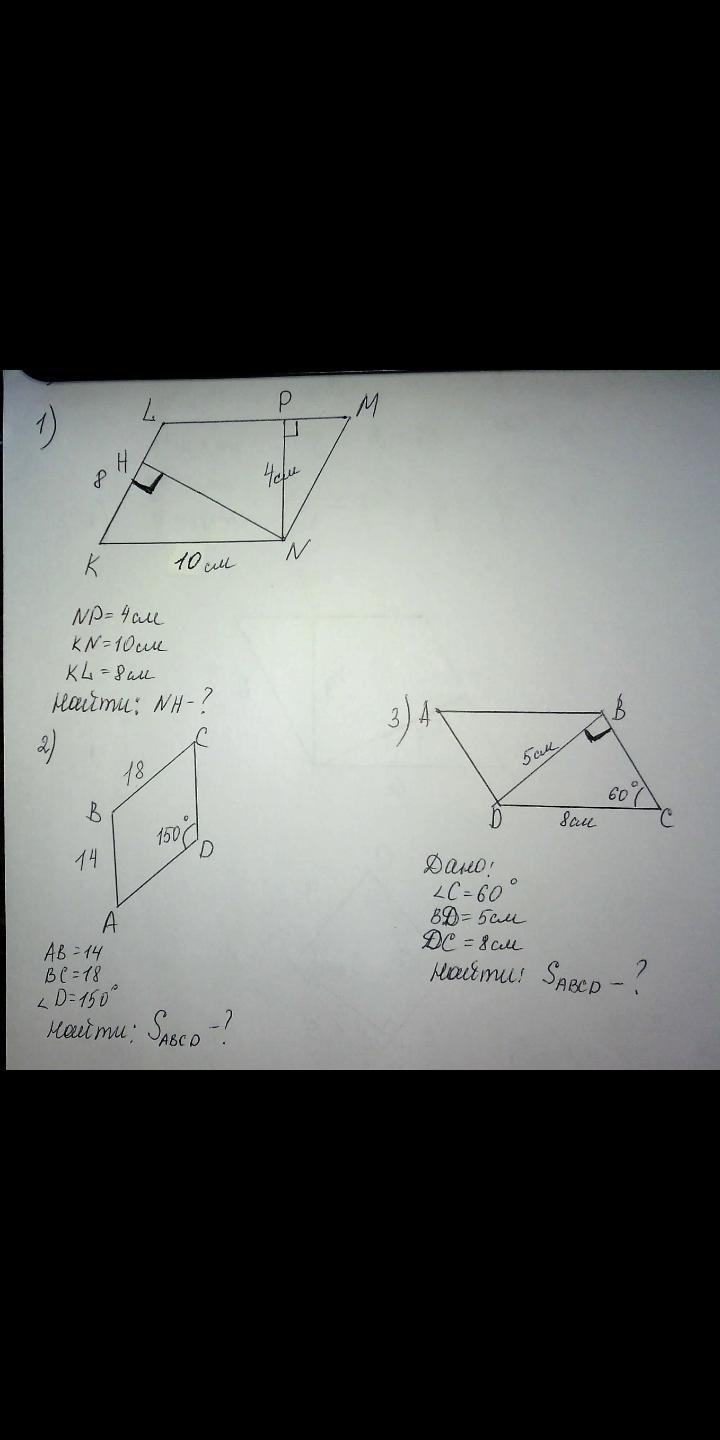 1)
L
P
M
H
8
4см
K
10 см
N
NP = 4 см
KN = 10 см
KL = 8 см
Найти: NH - ?
2)
C
18
B
150°
14
D
A
AB = 14
BC = 18
∠D = 150°
Найти: S_ABCD - ?
3)
A
B
5 см
60°
D
8 см
C
Дано:
∠C = 60°
BD = 5 см
DC = 8 см
Найти: S_ABCD - ?